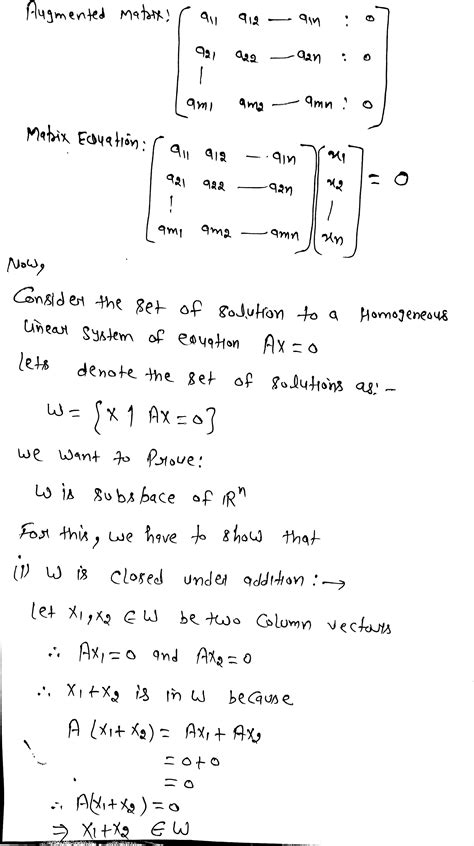 Augmented Matrix: [ a11 a12 — a1n : 0
a21 a22 — a2n : 0
|
am1 am2 — amn : 0 ]
Matrix Equation: [ a11 a12 — a1n ] [ x1 ]
[ a21 a22 — a2n ] [ x2 ] = 0
[ ¦ ] [ | ]
[ am1 am2 — amn ] [ xn ]
Now,
Consider the set of solution to a Homogeneous
linear system of equation AX = 0
lets denote the set of solutions as: -
W = {X 1 AX = 0}
we want to Prove:
W is subspace of ℝⁿ
For this, we have to show that
(i) W is closed under addition : →
Let X1, X2 ∈ W be two column vectors
∴ AX1 = 0 and AX2 = 0
∴ X1 + X2 is in W because
A (X1 + X2) = AX1 + AX2
= 0 + 0
= 0
∴ A(X1 + X2) = 0
⇒ X1 + X2 ∈ W